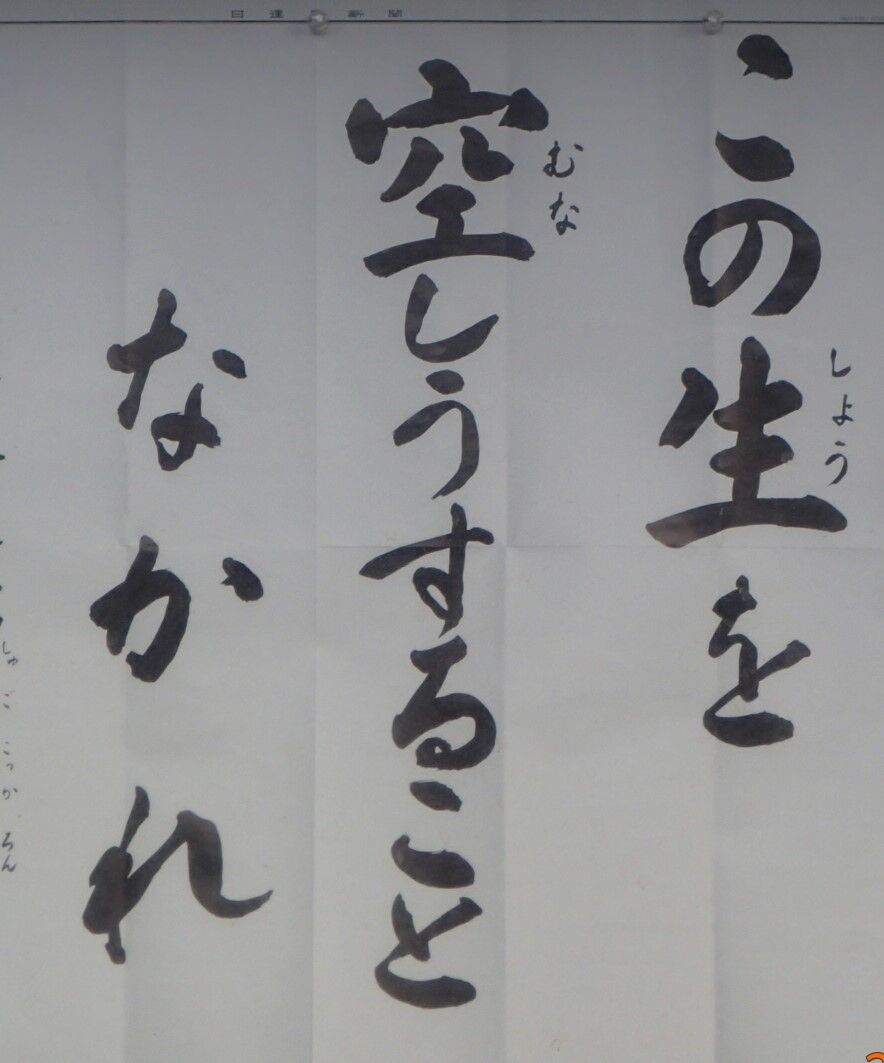 この生を
しょう
空しうすること
むな
なかれ
しゅ
こっか
ろん